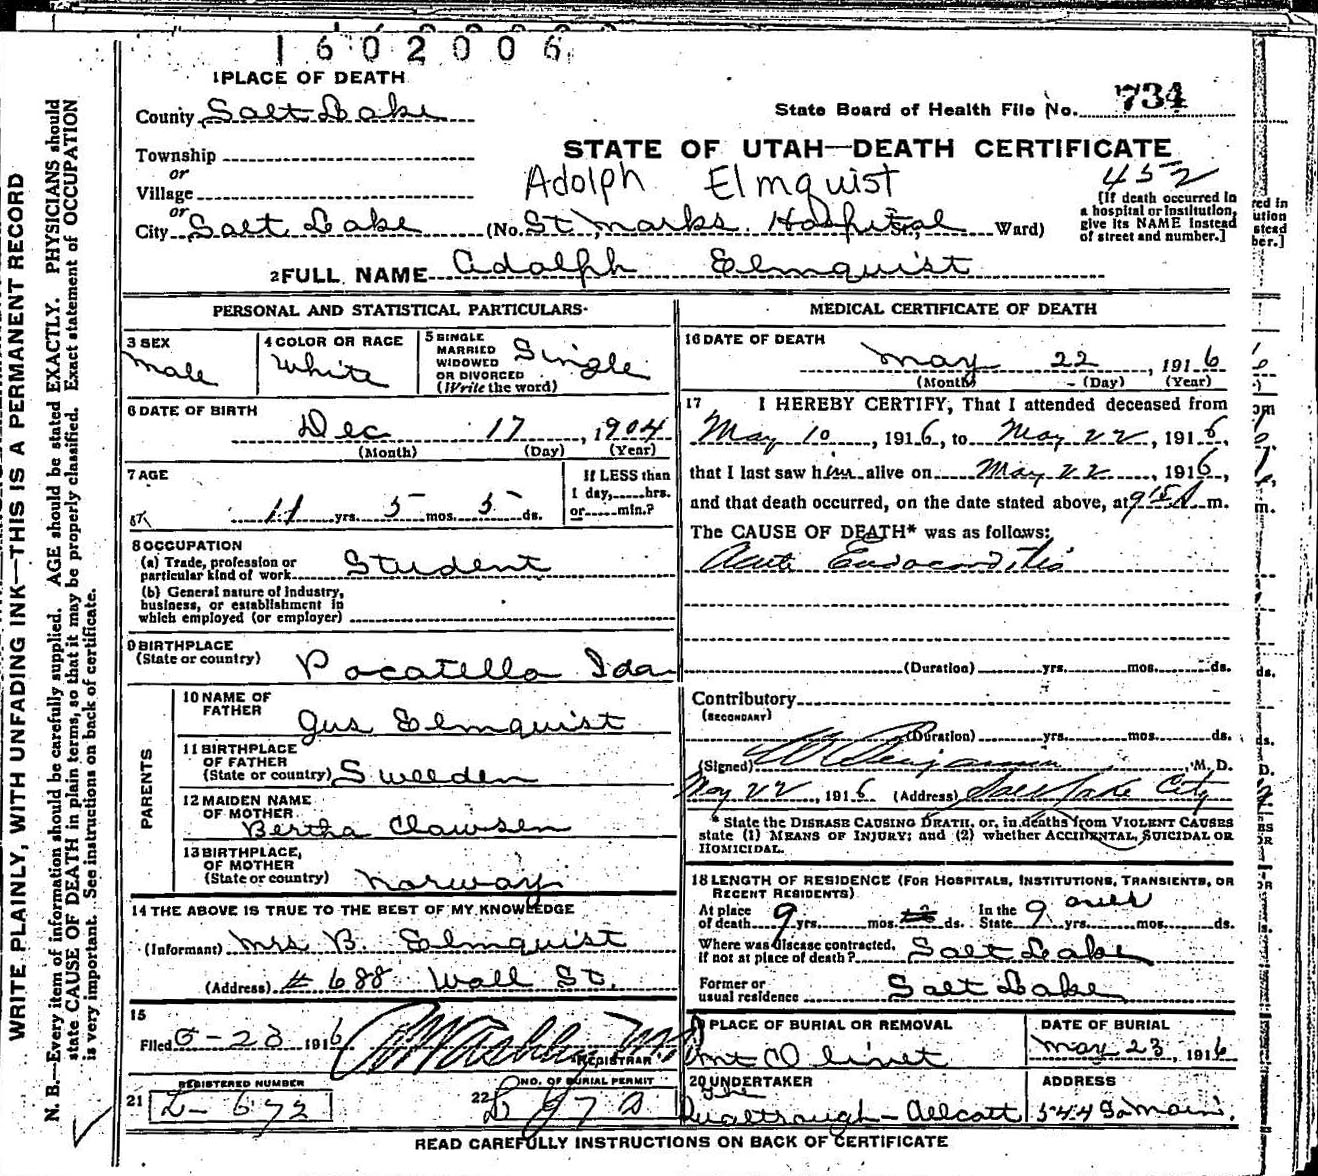 1602006
1 PLACE OF DEATH
County Salt Lake
State Board of Health File No. 734
Township
STATE OF UTAH—DEATH CERTIFICATE
or
Village
Adolph Elmquist
452
or
City Salt Lake (No. St Marks Hospital St., Ward)
[If death occurred in
a hospital or institution,
give its NAME instead
of street and number.]
2 FULL NAME Adolph Elmquist
PERSONAL AND STATISTICAL PARTICULARS
3 SEX
Male
4 COLOR OR RACE
White
5 SINGLE
MARRIED
WIDOWED
OR DIVORCED
(Write the word)
Single
6 DATE OF BIRTH
Dec 17, 1904
(Month) (Day) (Year)
7 AGE
11 yrs. 5 mos. 5 ds.
If LESS than
1 day, hrs.
or min.?
8 OCCUPATION
(a) Trade, profession or
particular kind of work Student
(b) General nature of Industry,
business, or establishment in
which employed (or employer)
9 BIRTHPLACE
(State or country) Pocatello Ida
PARENTS
10 NAME OF
FATHER
Gus Elmquist
11 BIRTHPLACE
OF FATHER
(State or country) Sweeden
12 MAIDEN NAME
OF MOTHER
Bertha Clawsen
13 BIRTHPLACE,
OF MOTHER
(State or country) Norway
14 THE ABOVE IS TRUE TO THE BEST OF MY KNOWLEDGE
(Informant) Mrs B. Elmquist
(Address) # 688 Wall St.
15
Filed 5-23 1916
REGISTRAR
REGISTERED NUMBER
21 L-672
NO. OF BURIAL PERMIT
22
MEDICAL CERTIFICATE OF DEATH
16 DATE OF DEATH
May 22, 1916
(Month) (Day) (Year)
17 I HEREBY CERTIFY, That I attended deceased from
May 10, 1916, to May 22, 1916,
that I last saw him alive on May 22, 1916,
and that death occurred, on the date stated above, at 9 15 A m.
The CAUSE OF DEATH* was as follows:
Acute Endocarditis
(Duration) yrs. mos. ds.
Contributory
(SECONDARY)
(Duration) yrs. mos. ds.
(Signed) Benjamin, M. D.
May 22, 1916 (Address) Salt Lake City
* State the DISEASE CAUSING DEATH, or, in deaths from VIOLENT CAUSES
state (1) MEANS OF INJURY; and (2) whether ACCIDENTAL, SUICIDAL OR
HOMICIDAL.
18 LENGTH OF RESIDENCE (FOR HOSPITALS, INSTITUTIONS, TRANSIENTS, OR
RECENT RESIDENTS)
At place
of death 9 yrs. mos. ds.
In the
State 9 yrs. mos. ds.
Where was disease contracted,
if not at place of death? Salt Lake
Former or
usual residence Salt Lake
19 PLACE OF BURIAL OR REMOVAL
Mt Olivet
DATE OF BURIAL
May 23, 1916
20 UNDERTAKER
The
ADDRESS
544 So Main.
READ CAREFULLY INSTRUCTIONS ON BACK OF CERTIFICATE
WRITE PLAINLY, WITH UNFADING INK—THIS IS A PERMANENT RECORD
N. B.—Every item of information should be carefully supplied. AGE should be stated EXACTLY. PHYSICIANS should
state CAUSE OF DEATH in plain terms, so that it may be properly classified. Exact statement of OCCUPATION
is very important. See instructions on back of certificate.